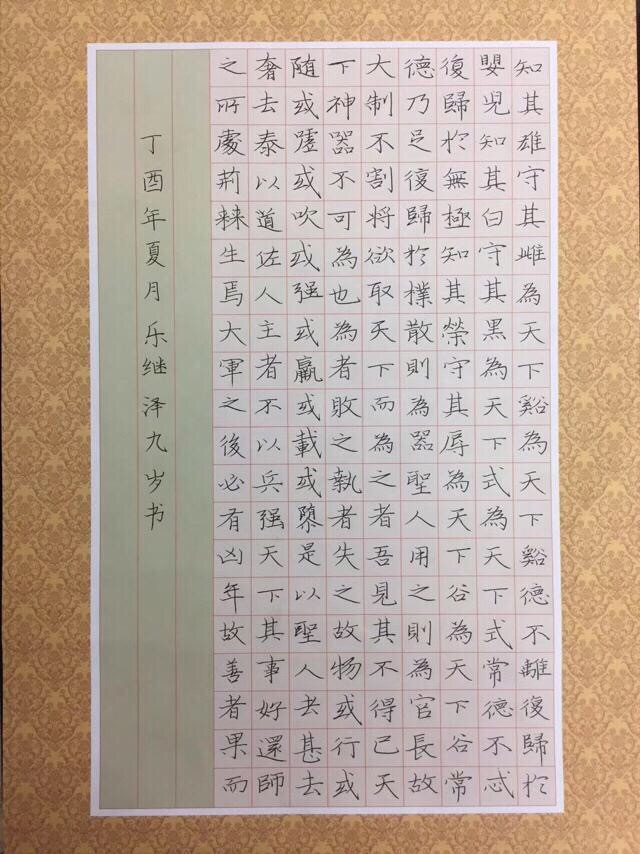 知其雄守其雌為天下谿為天下谿德不離復歸於
嬰児知其白守其黑為天下式為天下式常德不忒
復歸於無極知其榮守其辱為天下谷為天下谷常
德乃足復歸於樸散則為器聖人用之則為官長故
大制不割將欲取天下而為之者吾見其不得已天
下神器不可為也為者敗之執者失之故物或行或
随或嘘或吹或强或羸或載或隳是以聖人去甚去
奢去泰以道佐人主者不以兵强天下其事好還師
之所處荊棘生焉大軍之後必有凶年故善者果而
丁酉年夏月乐继泽九岁书